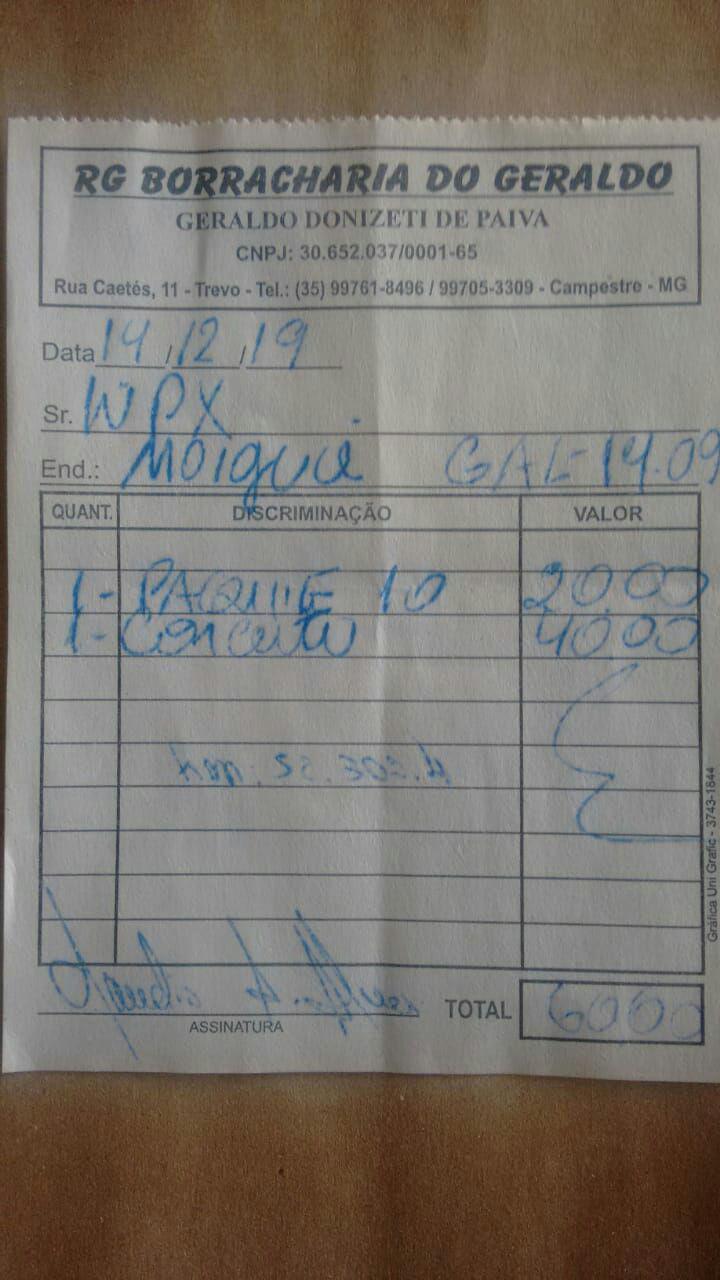 RG BORRACHARIA DO GERALDO
GERALDO DONIZETI DE PAIVA
CNPJ: 30.652.037/0001-65
Rua Caetés, 11 - Trevo - Tel.: (35) 99761-8496 / 99705-3309 - Campestre - MG
Data 14/12/19
Sr. WPX
End.: 14.09
QUANT. DISCRIMINAÇÃO VALOR
1- PAQUITE 10 20,00
1- Concerto 40,00
km:
Gráfica Uni Grafic - 3743-1844
TOTAL 60,00
ASSINATURA